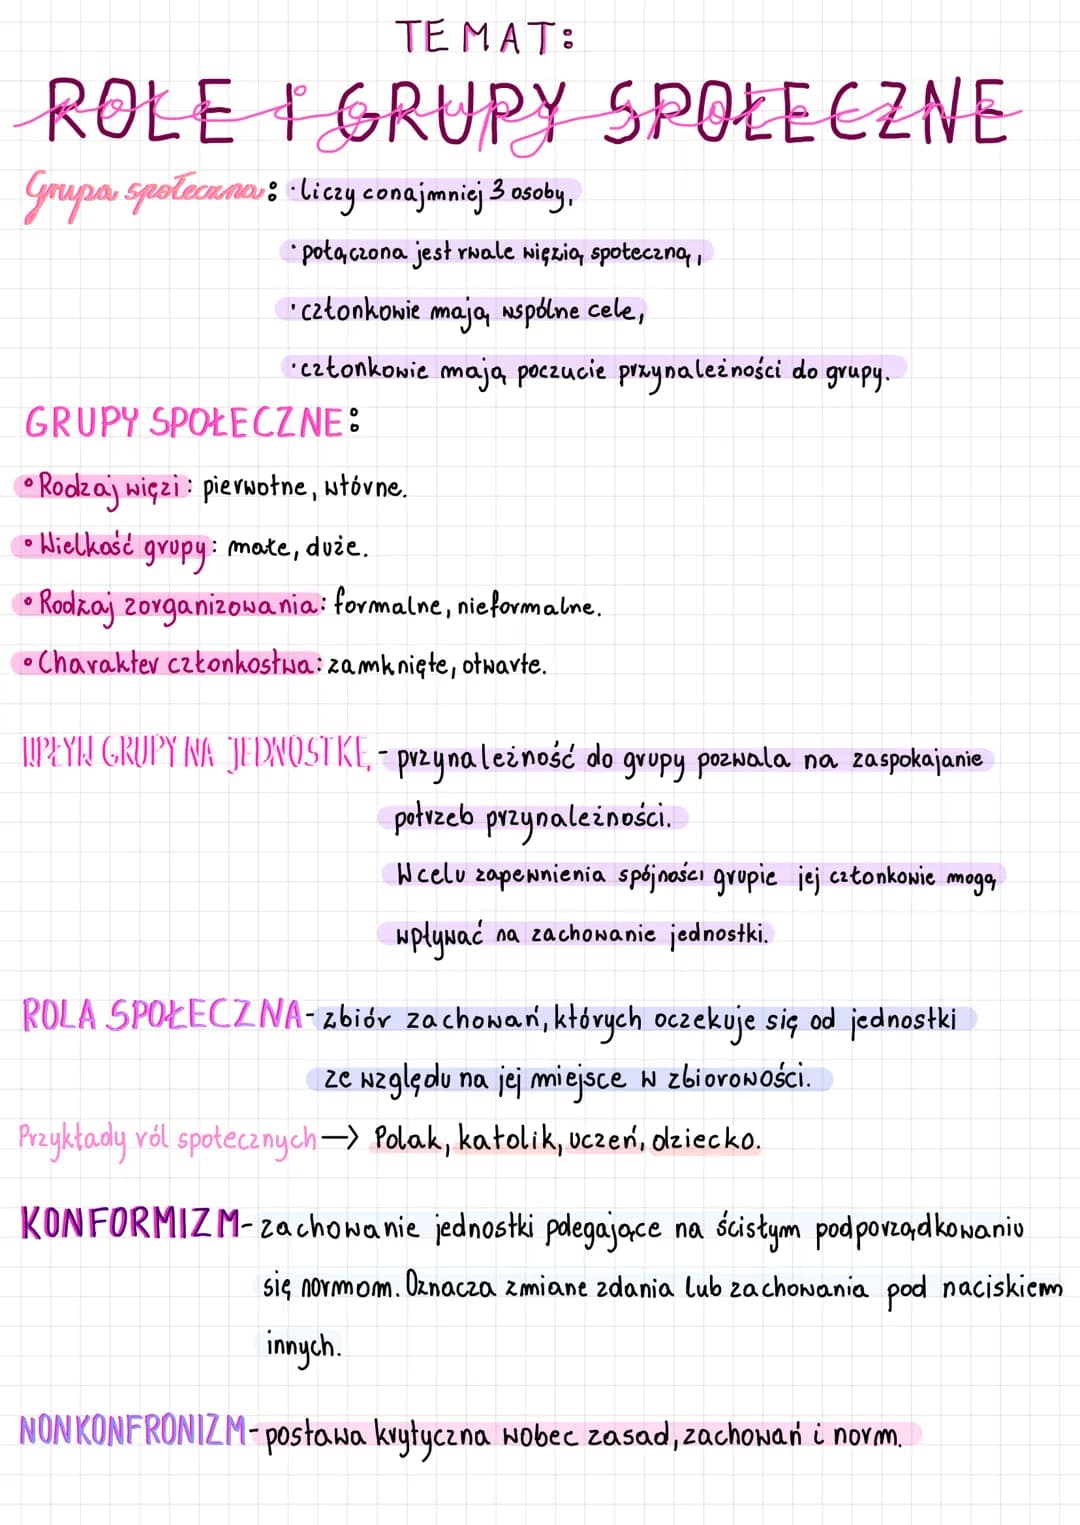 TEMAT:
ROLE I GRUPY SPOŁECZNE
Grupa społeczna: · liczy conajmniej 3 osoby,
· połączona jest rwale więzią społeczną,
· członkowie mają wspólne cele,
· członkowie mają poczucie przynależności do grupy.
GRUPY SPOŁECZNE:
• Rodzaj więzi: pierwotne, wtórne.
• Wielkość grupy: małe, duże.
• Rodzaj zorganizowania: formalne, nieformalne.
• Charakter członkostwa: zamknięte, otwarte.
WPŁYW GRUPY NA JEDNOSTKĘ - przynależność do grupy pozwala na zaspokajanie
potrzeb przynależności.
W celu zapewnienia spójności grupie jej członkowie mogą
wpływać na zachowanie jednostki.
ROLA SPOŁECZNA - zbiór zachowań, których oczekuje się od jednostki
ze względu na jej miejsce w zbiorowości.
Przykłady ról społecznych → Polak, katolik, uczeń, dziecko.
KONFORMIZM - zachowanie jednostki polegające na ścisłym podporządkowaniu
się normom. Oznacza zmiane zdania lub zachowania pod naciskiem
innych.
NONKONFRONIZM - postawa krytyczna wobec zasad, zachowań i norm.